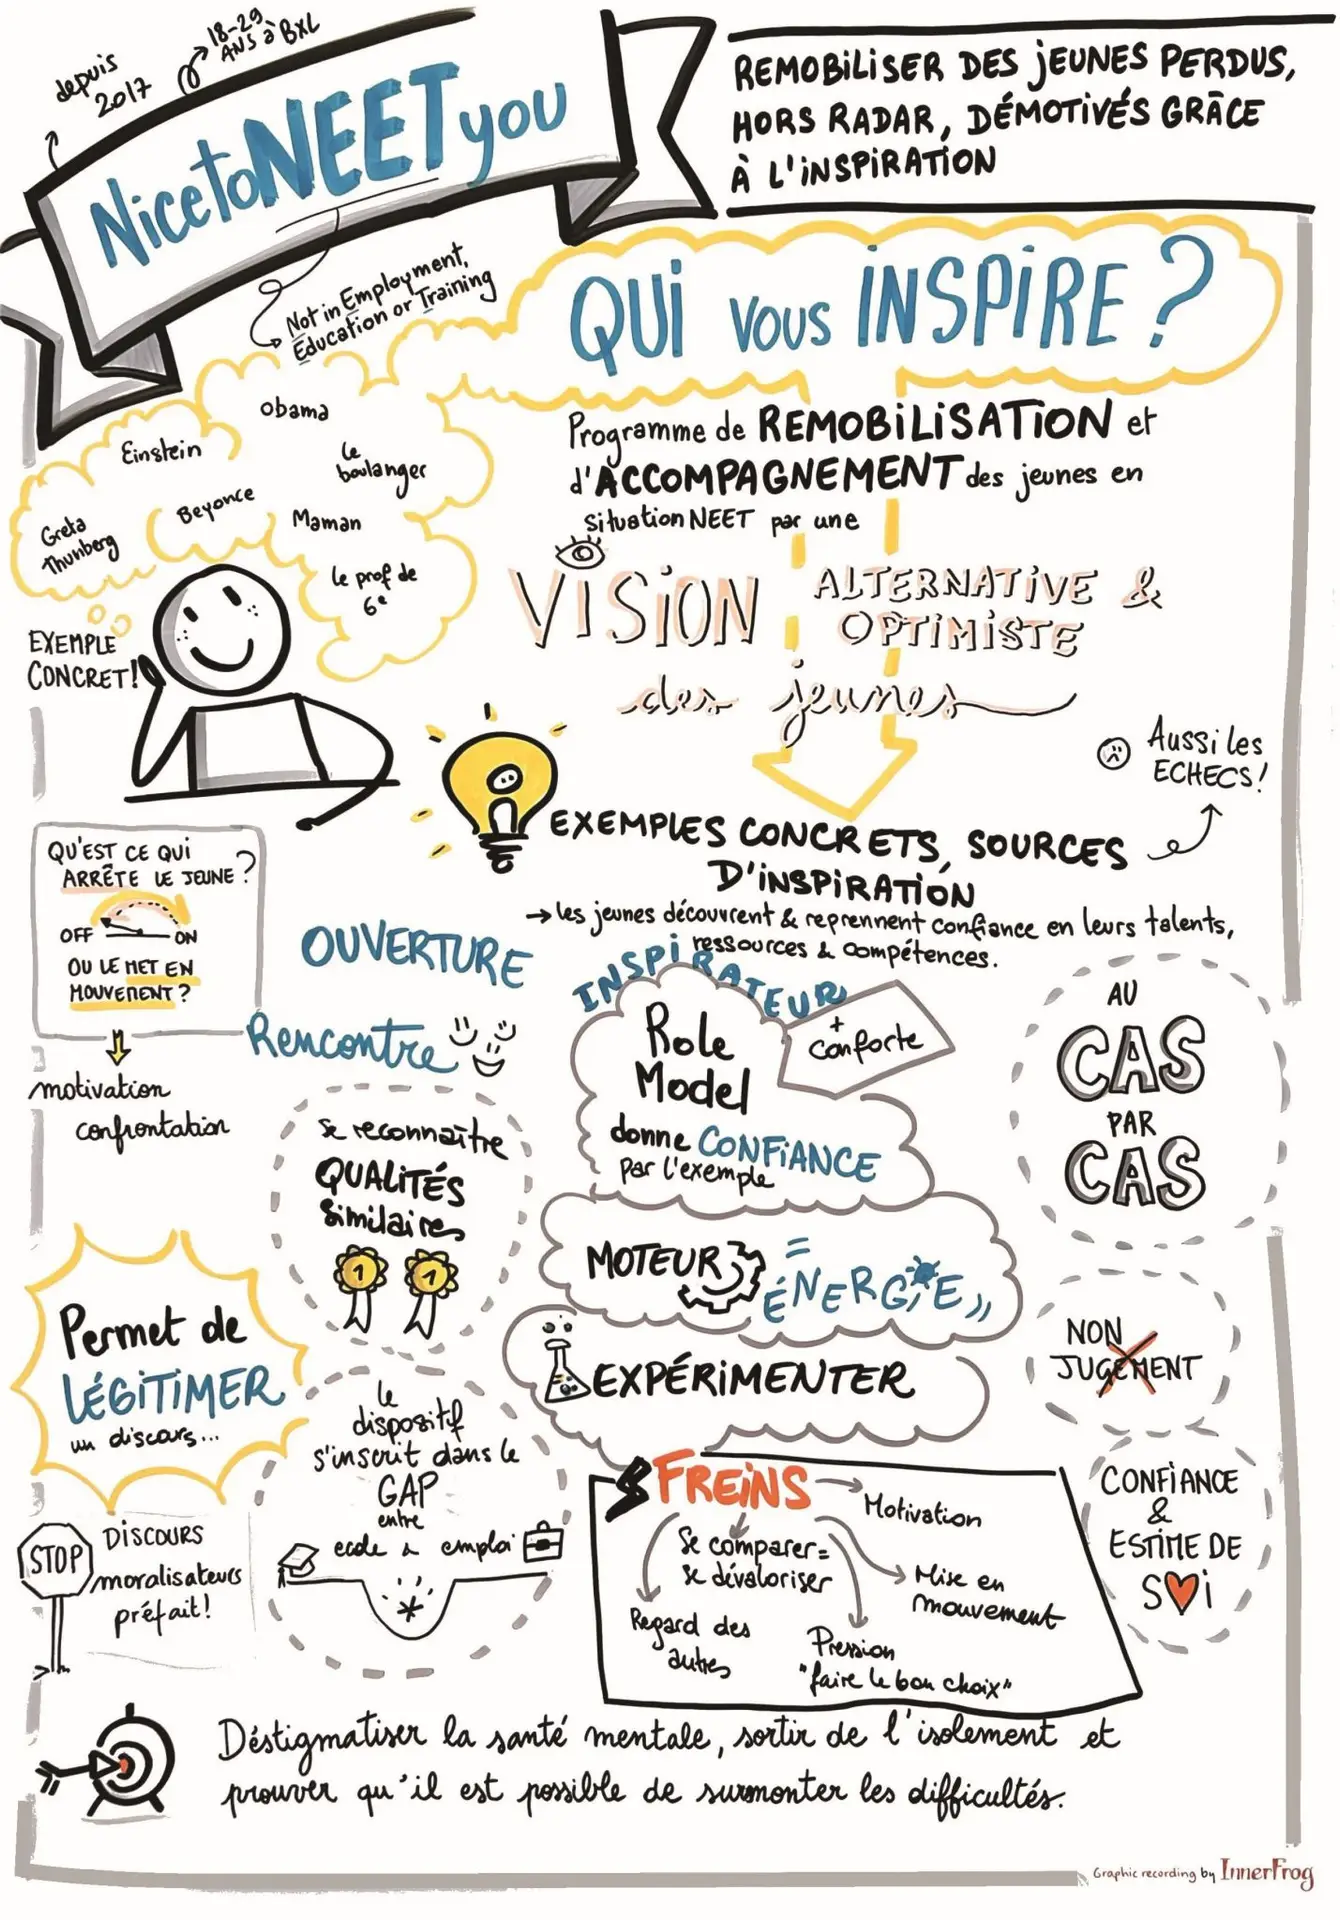 depuis
2017
18-29
ANS à BXL
NicetoNEETyou
REMOBILISER DES JEUNES PERDUS,
HORS RADAR, DÉMOTIVÉS GRÂCE
À L'INSPIRATION
Not in Employment,
Education or Training
QUI VOUS INSPIRE ?
Obama
Einstein
Le
boulanger
Beyonce
Greta
Thunberg
Maman
Le prof de
6e
EXEMPLE
CONCRET!
Programme de REMOBILISATION et
d'ACCOMPAGNEMENT des jeunes en
situation NEET par une
VISION ALTERNATIVE &
OPTIMISTE
des jeunes
Aussi les
ECHECS!
EXEMPLES CONCRETS, SOURCES
D'INSPIRATION
→ les jeunes découvrent & reprennent confiance en leurs talents,
ressources & compétences.
QU'EST CE QUI
ARRÊTE LE JEUNE ?
OFF ON
OU LE MET EN
MOUVEMENT ?
motivation
confrontation
OUVERTURE
Rencontre
INSPIRATEUR
Role
Model
+
conforte
donne CONFIANCE
par l'exemple
AU
CAS
PAR
CAS
Se reconnaître
QUALITÉS
Similaires
1 1
MOTEUR = ÉNERGIE
EXPÉRIMENTER
NON
JUGEMENT
Permet de
LÉGITIMER
un discours...
le
dispositif
s'inscrit dans le
GAP
entre
ecole & emploi
STOP
DISCOURS
moralisateurs
préfait!
FREINS
Motivation
Se comparer =
se dévaloriser
Mise en
mouvement
Regard des
autres
Pression
"faire le bon choix"
CONFIANCE
&
ESTIME DE
SOi
Déstigmatiser la santé mentale, sortir de l'isolement et
prouver qu'il est possible de surmonter les difficultés.
Graphic recording by InnerFrog